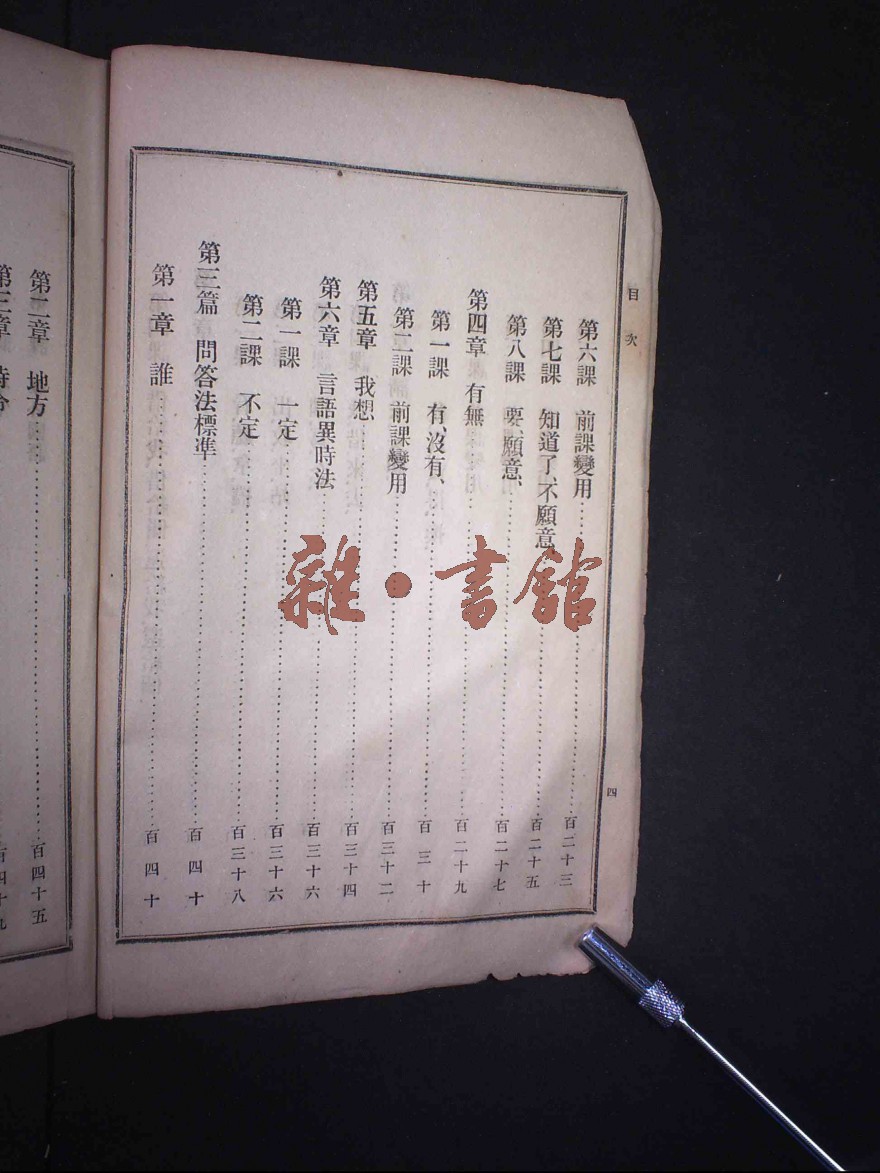 目次
四
第六課 前課變用 百二十三
第七課 知道了、不願意、 百二十五
第八課 要、願意、 百二十七
第四章 有無 百二十九
第一課 有、沒有、 百三十
第二課 前課變用 百三十二
第五章 我想 百三十四
第六章 言語異時法 百三十六
第一課 一定 百三十六
第二課 不定 百三十八
第三篇 問答法標準 百四十
第一章 誰 百四十
第二章 地方 百四十五
第三章 時令 百四十九
雜·書館